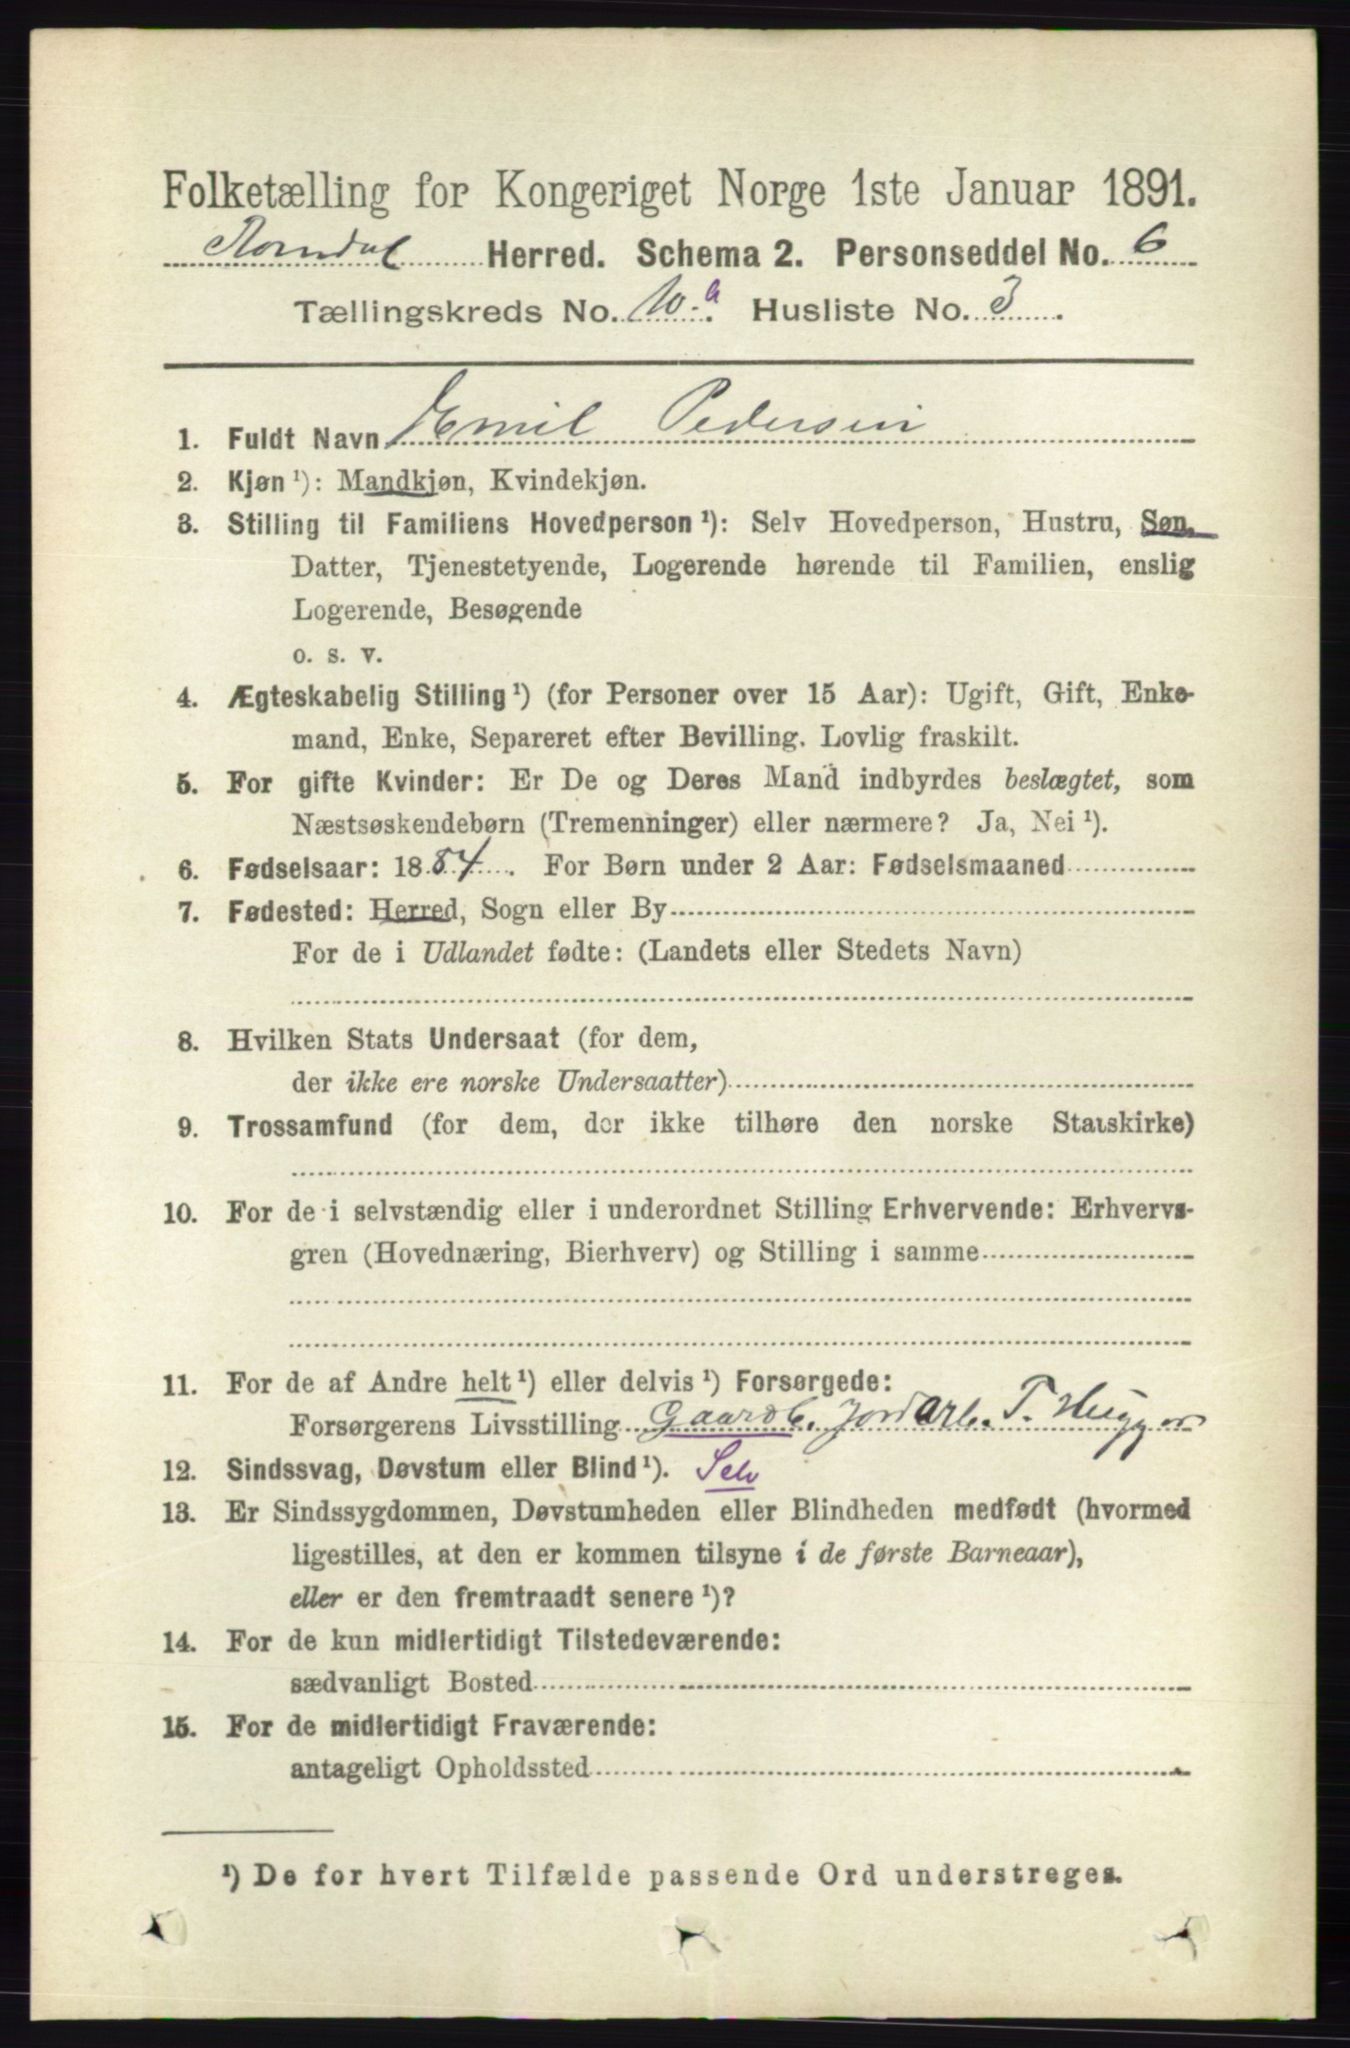 Folketælling for Kongeriget Norge 1ste Januar 1891.
Romdal Herred. Schema 2. Personseddel No. 6
Tællingskreds No. 10 a. Husliste No. 3.
1. Fuldt Navn Emil Pedersen
2. Kjøn ¹): Mandkjøn, Kvindekjøn.
3. Stilling til Familiens Hovedperson ¹): Selv Hovedperson, Hustru, Søn,
Datter, Tjenestetyende, Logerende hørende til Familien, enslig
Logerende, Besøgende
o. s. v.
4. Ægteskabelig Stilling ¹) (for Personer over 15 Aar): Ugift, Gift, Enke-
mand, Enke, Separeret efter Bevilling. Lovlig fraskilt.
5. For gifte Kvinder: Er De og Deres Mand indbyrdes beslægtet, som
Næstsøskendebørn (Tremenninger) eller nærmere? Ja, Nei ¹).
6. Fødselsaar: 1884. For Børn under 2 Aar: Fødselsmaaned
7. Fødested: Herred, Sogn eller By
For de i Udlandet fødte: (Landets eller Stedets Navn)
8. Hvilken Stats Undersaat (for dem,
der ikke ere norske Undersaatter)
9. Trossamfund (for dem, der ikke tilhøre den norske Statskirke)
10. For de i selvstændig eller i underordnet Stilling Erhvervende: Erhvervs-
gren (Hovednæring, Bierhverv) og Stilling i samme
11. For de af Andre helt ¹) eller delvis ¹) Forsørgede:
Forsørgerens Livsstilling Gaardb. Jordarb. T. Hugger
12. Sindssvag, Døvstum eller Blind ¹). Selv
13. Er Sindssygdommen, Døvstumheden eller Blindheden medfødt (hvormed
ligestilles, at den er kommen tilsyne i de første Barneaar),
eller er den fremtraadt senere ¹)?
14. For de kun midlertidigt Tilstedeværende:
sædvanligt Bosted
15. For de midlertidigt Fraværende:
antageligt Opholdssted
¹) De for hvert Tilfælde passende Ord understreges.